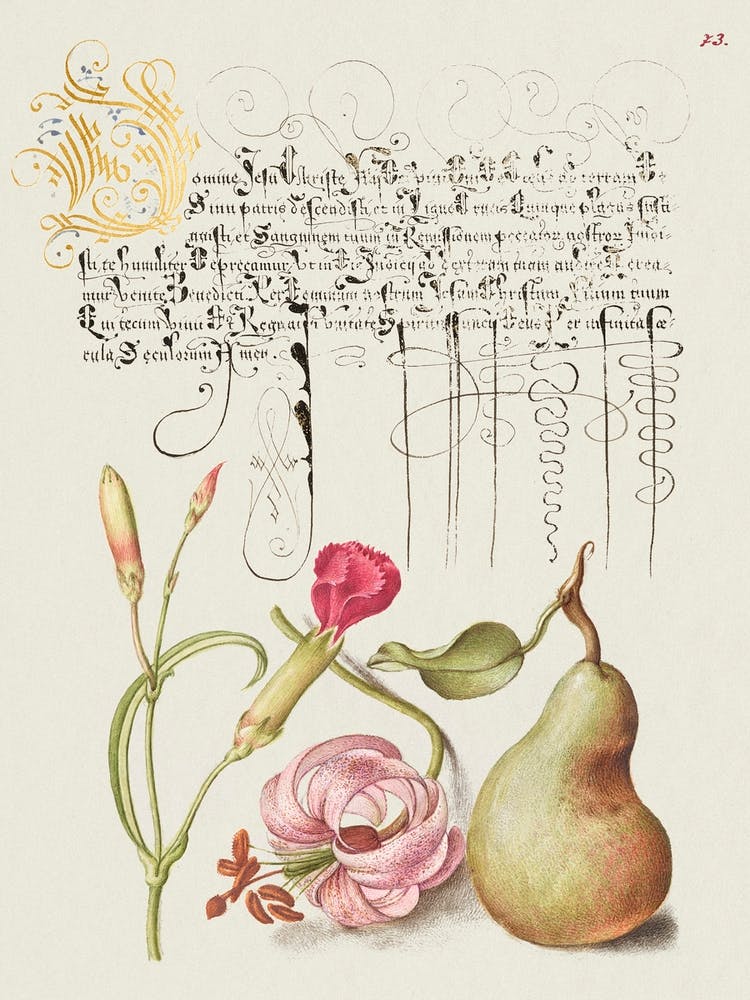 73.
Domine Jesu Christe Fili Dei vivi Qui De Cœlis ad terram De
Sinu patris descendisti, et in Ligno Crucis Quinque plagas susti-
nuisti, et Sanguinem tuum in Remissionem peccator, nostror Fudi-
sti, te humiliter Deprecamur, Vt in Die Iudicij ad dexteram tuam audire Merea-
mur Venite Benedicti. Per Dominum nostrum Jesum Christum, Filium tuum
Qui tecum vivit Et Regnat in unitate Spiritus sancti Deus Per infinita sæ-
cula Sęculorum Amen.